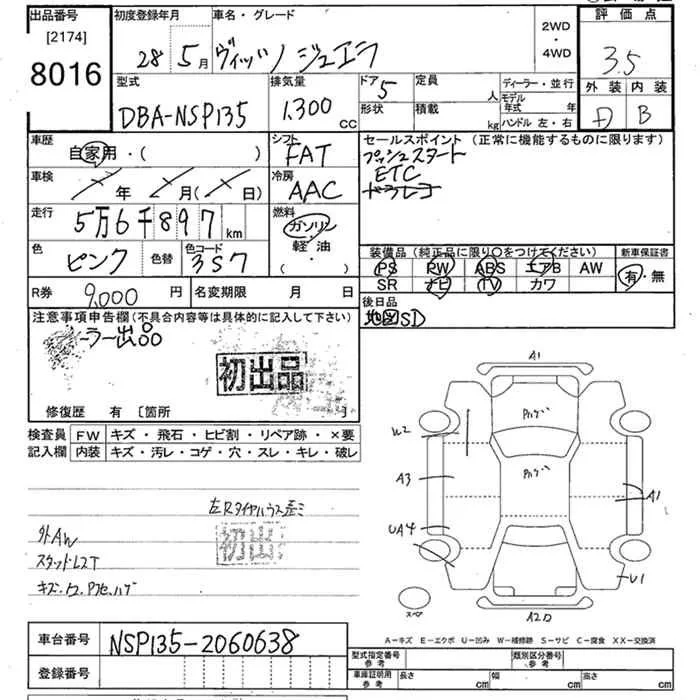 出品番号
[2174]
8016
初度登録年月
28 5月
車名・グレード
ヴィッツ ジュエラ
2WD
・
4WD
評価点
3.5
外装 内装
D B
型式
DBA-NSP135
排気量
1,300 CC
ドア 5
定員 人
形状
積載 kg
ディーラー・並行
モデル年式 年
ハンドル 左・右
車歴
自家用・( )
シフト
FAT
車検
年 月( 日)
冷房
AAC
走行
5万6千897 km
燃料
ガソリン
軽油・
( )
色
ピンク
色替
色コード
3S7
セールスポイント (正常に機能するものに限ります)
プッシュスタート
ETC
ドラレコ
装備品(純正品に限り○をつけてください)
PS PW ABS エアB AW
SR ナビ TV カワ
新車保証書
有・無
R券 9,000 円
名変期限 月 日
後日品
地図SD
注意事項申告欄(不具合内容等は具体的に記入して下さい)
ラー出品
初出品
修復歴 有 [箇所 ]
検査員
記入欄
FW キズ・飛石・ヒビ割・リペア跡・×要
内装 キズ・汚レ・コゲ・穴・スレ・キレ・破レ
左Rタイヤハウス歪ミ
外AW
初出
スタッドレスT
A1
A3
A1
UA4
U1
スペア
A-キズ E-エクボ U-凹み W-補修跡 S-サビ C-腐食 XX-交換済
車台番号
NSP135-2060638
登録番号
型式指定番号
参考
類別区分番号
参考
車庫証明用
参考
長さ cm
幅 cm
高さ cm